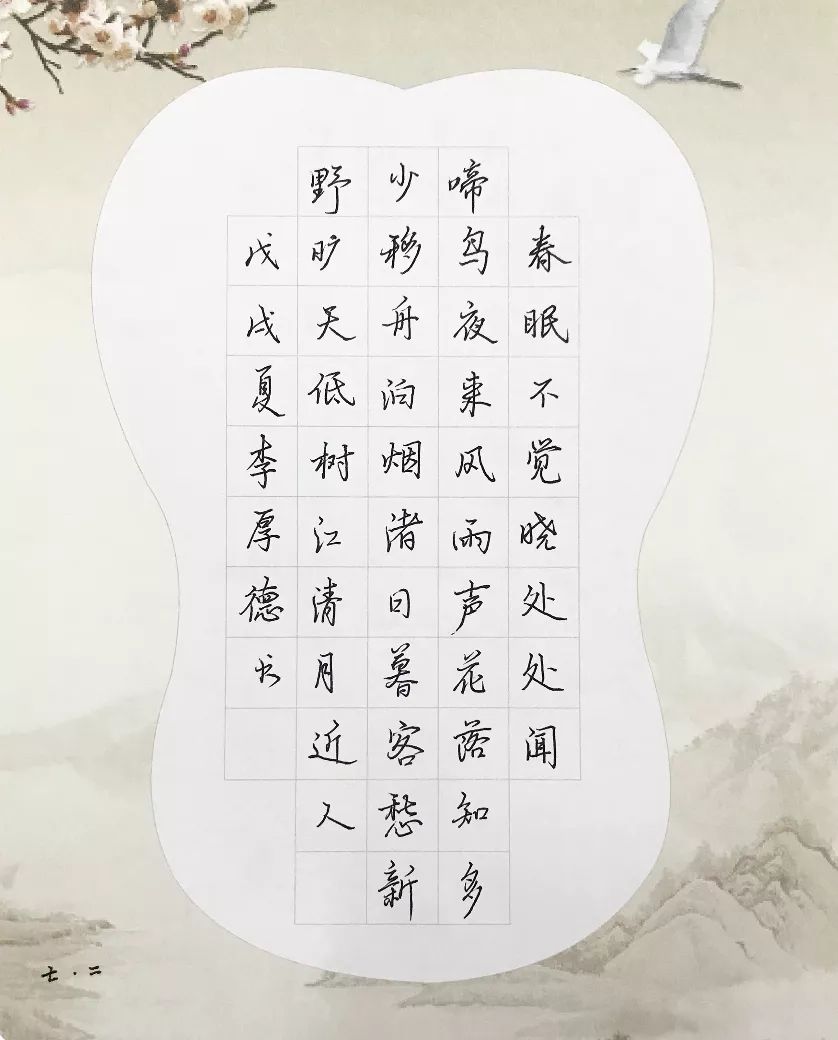 春眠不觉晓处处闻
啼鸟夜来风雨声花落知多
少移舟泊烟渚日暮客愁新
野旷天低树江清月近人
戊戌夏李厚德书
七·二